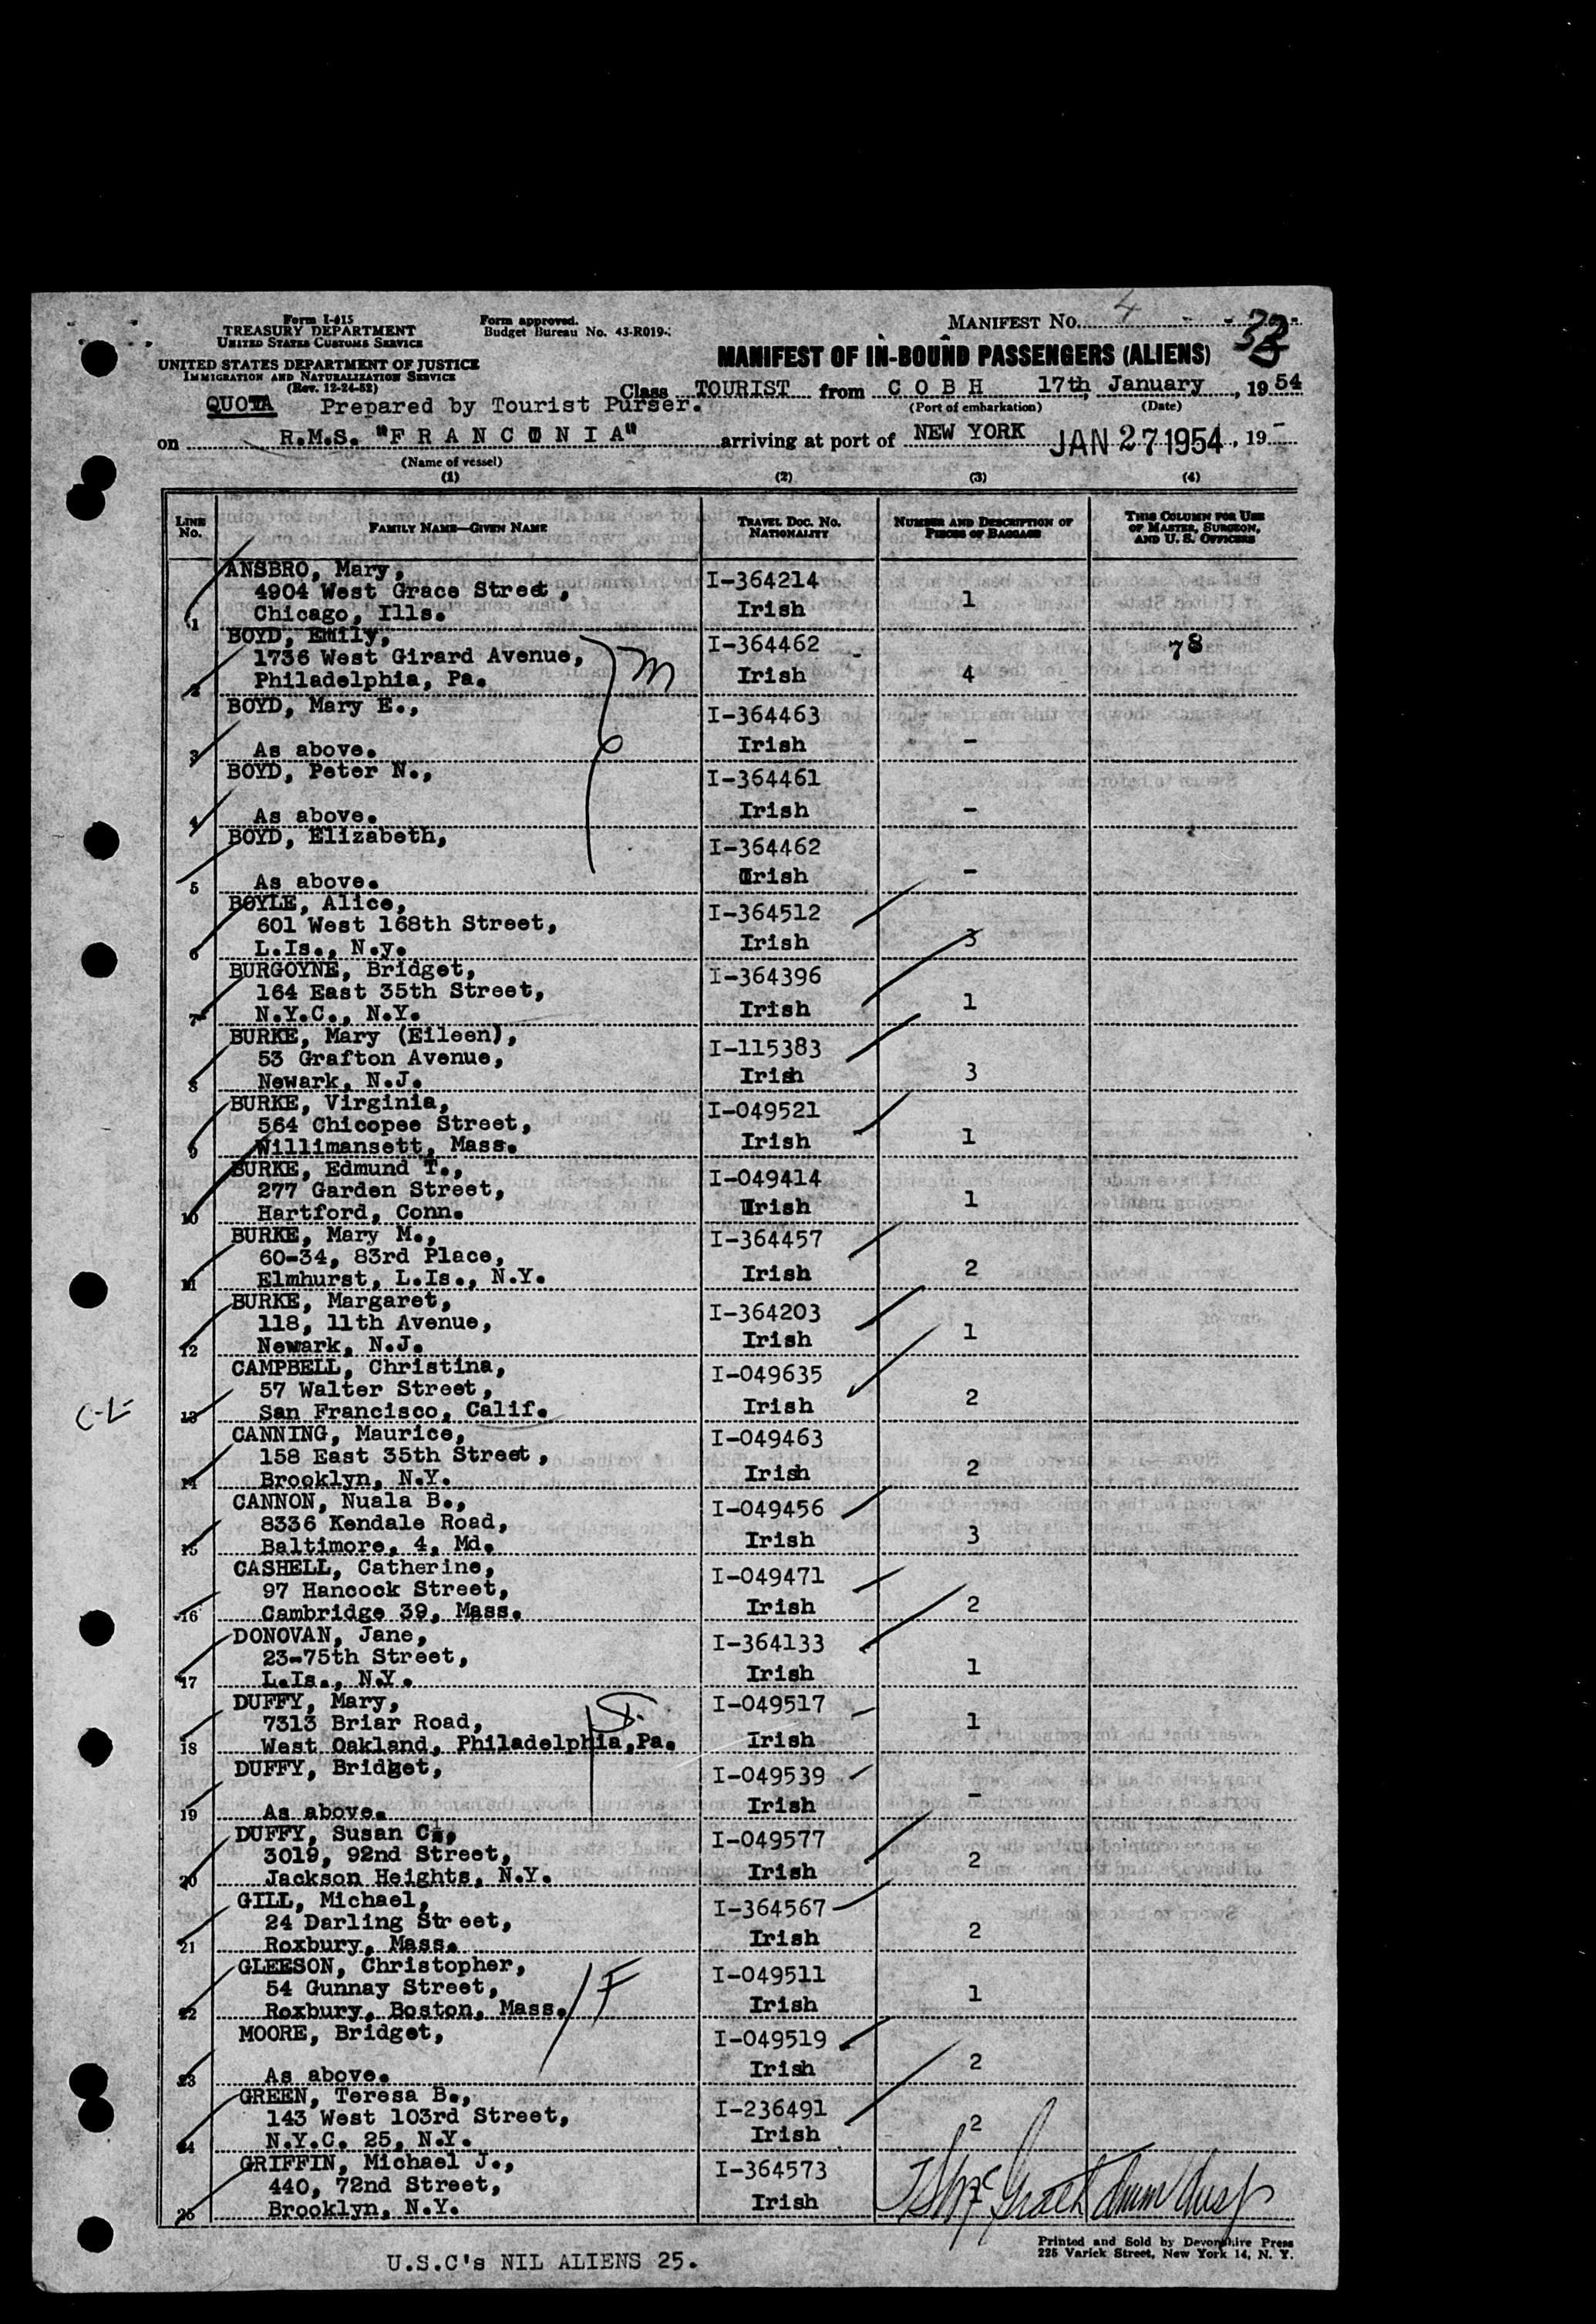 Form I-415
TREASURY DEPARTMENT
UNITED STATES CUSTOMS SERVICE
UNITED STATES DEPARTMENT OF JUSTICE
IMMIGRATION AND NATURALIZATION SERVICE
(Rev. 12-24-52)
Form approved.
Budget Bureau No. 43-R019-
MANIFEST No. 4
33
MANIFEST OF IN-BOUND PASSENGERS (ALIENS)
Class TOURIST from COBH 17th, January, 1954
(Port of embarkation) (Date)
QUOTA Prepared by Tourist Purser.
on R.M.S. "FRANCONIA" arriving at port of NEW YORK JAN 27 1954, 19
(Name of vessel)
(1) (2) (3) (4)
LINE No. FAMILY NAME—GIVEN NAME TRAVEL DOC. NO. NATIONALITY NUMBER AND DESCRIPTION OF PIECES OF BAGGAGE THIS COLUMN FOR USE OF MASTER, SURGEON, AND U. S. OFFICERS
ANSBRO, Mary,
4904 West Grace Street, I-364214
1 Chicago, Ills. Irish 1
BOYD, Emily, I-364462 78
1736 West Girard Avenue, m
2 Philadelphia, Pa. Irish 4
BOYD, Mary E., I-364463
3 As above. Irish -
BOYD, Peter N., I-364461
4 As above. Irish -
BOYD, Elizabeth, I-364462
5 As above. Irish -
BOYLE, Alice, I-364512
601 West 168th Street,
6 L.Is., N.y. Irish 3
BURGOYNE, Bridget, I-364396
164 East 35th Street,
7 N.Y.C., N.Y. Irish 1
BURKE, Mary (Eileen), I-115383
53 Grafton Avenue,
8 Newark, N.J. Irish 3
BURKE, Virginia, I-049521
564 Chicopee Street,
9 Willimansett, Mass. Irish 1
BURKE, Edmund T., I-049414
277 Garden Street,
10 Hartford, Conn. Irish 1
BURKE, Mary M., I-364457
60-34, 83rd Place,
11 Elmhurst, L.Is., N.Y. Irish 2
BURKE, Margaret, I-364203
118, 11th Avenue,
12 Newark, N.J. Irish 1
CAMPBELL, Christina, I-049635
57 Walter Street,
13 San Francisco, Calif. Irish 2
CANNING, Maurice, I-049463
158 East 35th Street,
14 Brooklyn, N.Y. Irish 2
CANNON, Nuala B., I-049456
8336 Kendale Road,
15 Baltimore, 4, Md. Irish 3
CASHELL, Catherine, I-049471
97 Hancock Street,
16 Cambridge 39, Mass. Irish 2
DONOVAN, Jane, I-364133
23-75th Street,
17 L.Is., N.Y. Irish 1
DUFFY, Mary, I-049517
7313 Briar Road,
18 West Oakland, Philadelphia,Pa. Irish 1
DUFFY, Bridget, I-049539
19 As above. Irish -
DUFFY, Susan C., I-049577
3019, 92nd Street,
20 Jackson Heights, N.Y. Irish 2
GILL, Michael, I-364567
24 Darling Street,
21 Roxbury, Mass. Irish 2
GLEESON, Christopher, I-049511
54 Gunnay Street, F
22 Roxbury, Boston, Mass. Irish 1
MOORE, Bridget, I-049519
23 As above. Irish 2
GREEN, Teresa B., I-236491
143 West 103rd Street,
24 N.Y.C. 25, N.Y. Irish 2
GRIFFIN, Michael J., I-364573
440, 72nd Street,
25 Brooklyn, N.Y. Irish
Printed and Sold by Devonshire Press
225 Varick Street, New York 14, N. Y.
U.S.C's NIL ALIENS 25.